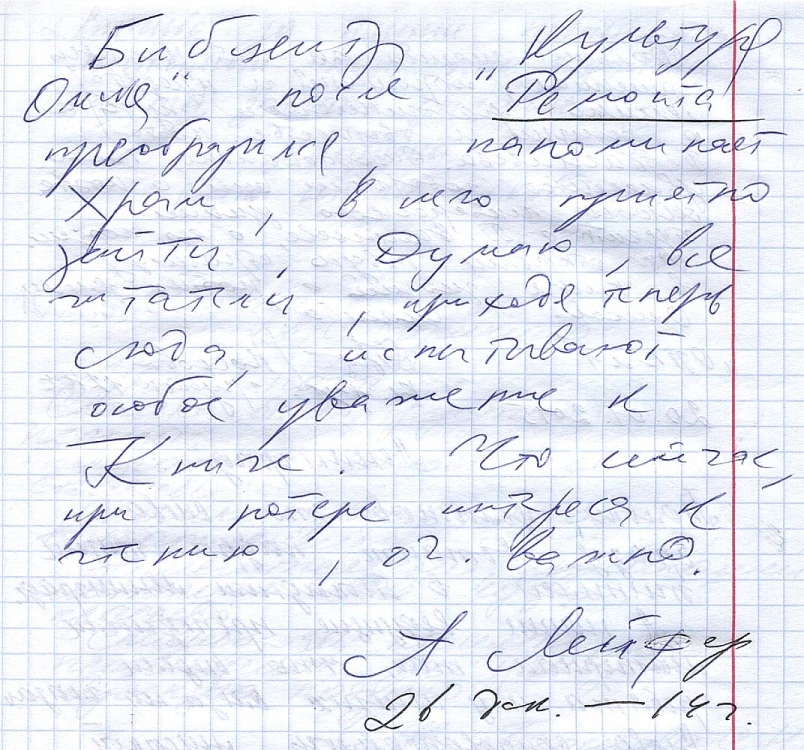 Библиотека "Культура
Омска" после "Ремонта
преобразилась, напоминает
Храм, в него приятно
зайти, Думаю, все
читатели, приходя теперь
сюда, испытывают
особое уважение к
Книге. Что сейчас,
при потере интереса к
чтению, оч. важно.
А Лейфер
26 дек. — 14 г.